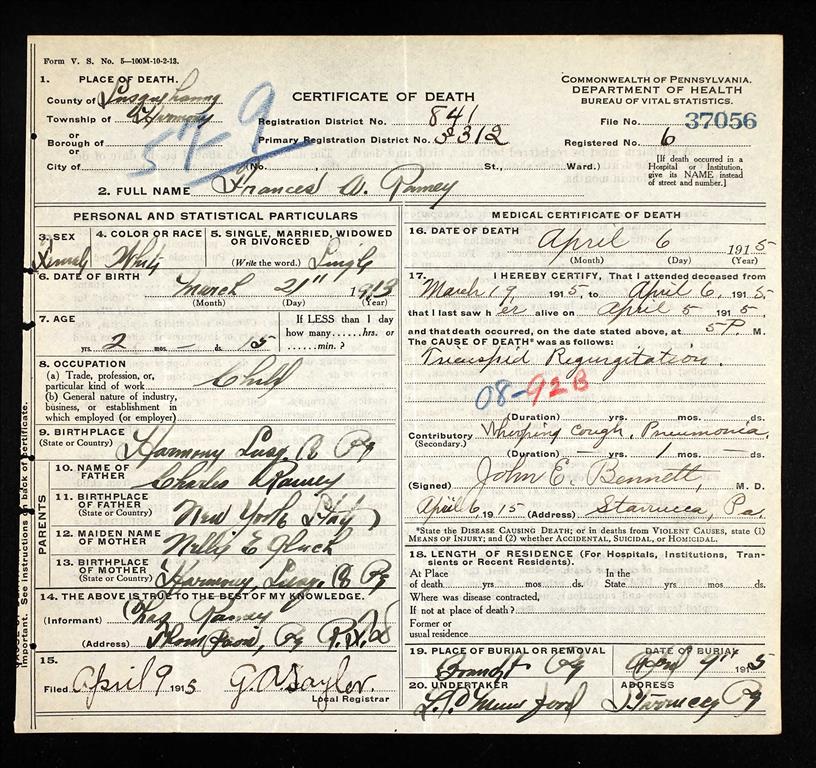 Form V. S. No. 5—100M-10-2-13.
1. PLACE OF DEATH.
County of Susquehanna
Township of Harmony
or
Borough of
or
City of
CERTIFICATE OF DEATH
Registration District No. 841
Primary Registration District No. 3312
(No. , St., Ward.)
COMMONWEALTH OF PENNSYLVANIA.
DEPARTMENT OF HEALTH
BUREAU OF VITAL STATISTICS.
File No. 37056
Registered No. 6
[If death occurred in a Hospital or Institution, give its NAME instead of street and number.]
2. FULL NAME Frances A. Ramey
PERSONAL AND STATISTICAL PARTICULARS
3. SEX
Female
4. COLOR OR RACE
White
5. SINGLE, MARRIED, WIDOWED OR DIVORCED
(Write the word.) Single
6. DATE OF BIRTH
March 21" 1913
(Month) (Day) (Year)
7. AGE
2 yrs. — mos. 15 ds.
If LESS than 1 day how many......hrs. or ......min.?
8. OCCUPATION
(a) Trade, profession, or, particular kind of work Child
(b) General nature of industry, business, or establishment in which employed (or employer)
9. BIRTHPLACE
(State or Country) Harmony Susq Co Pa
PARENTS
10. NAME OF FATHER Charles Ramey
11. BIRTHPLACE OF FATHER
(State or Country) New York State
12. MAIDEN NAME OF MOTHER Nellie E
13. BIRTHPLACE OF MOTHER
(State or Country) Harmony Susq Co Pa
14. THE ABOVE IS TRUE TO THE BEST OF MY KNOWLEDGE.
(Informant) Chas Ramey
(Address) Thompson, Pa
15.
Filed April 9 1915 G. A. Saylor.
Local Registrar
MEDICAL CERTIFICATE OF DEATH
16. DATE OF DEATH
April 6 1915
(Month) (Day) (Year)
17. I HEREBY CERTIFY, That I attended deceased from
March 19, 1915, to April 6, 1915
that I last saw her alive on April 5 1915,
and that death occurred, on the date stated above, at 5 P. M.
The CAUSE OF DEATH* was as follows:
Tricuspid Regurgitation.
08-92B
(Duration) yrs. mos. ds.
Contributory Whooping Cough, Pneumonia,
(Secondary.)
(Duration) — yrs. 1 mos. — ds.
(Signed) John E. Bennett, M. D.
April 6, 1915 (Address) Starrucca, Pa.
*State the DISEASE CAUSING DEATH; or in deaths from VIOLENT CAUSES, state (1) MEANS OF INJURY; and (2) whether ACCIDENTAL, SUICIDAL, OR HOMICIDAL.
18. LENGTH OF RESIDENCE (For Hospitals, Institutions, Transients or Recent Residents).
At Place of death......yrs. mos. ds. In the State......yrs. mos. ds.
Where was disease contracted,
If not at place of death?
Former or usual residence
19. PLACE OF BURIAL OR REMOVAL
Brandt Pa
DATE OF BURIAL
April 9" 1915
20. UNDERTAKER
ADDRESS
Starrucca Pa
important. See instructions on back of certificate.